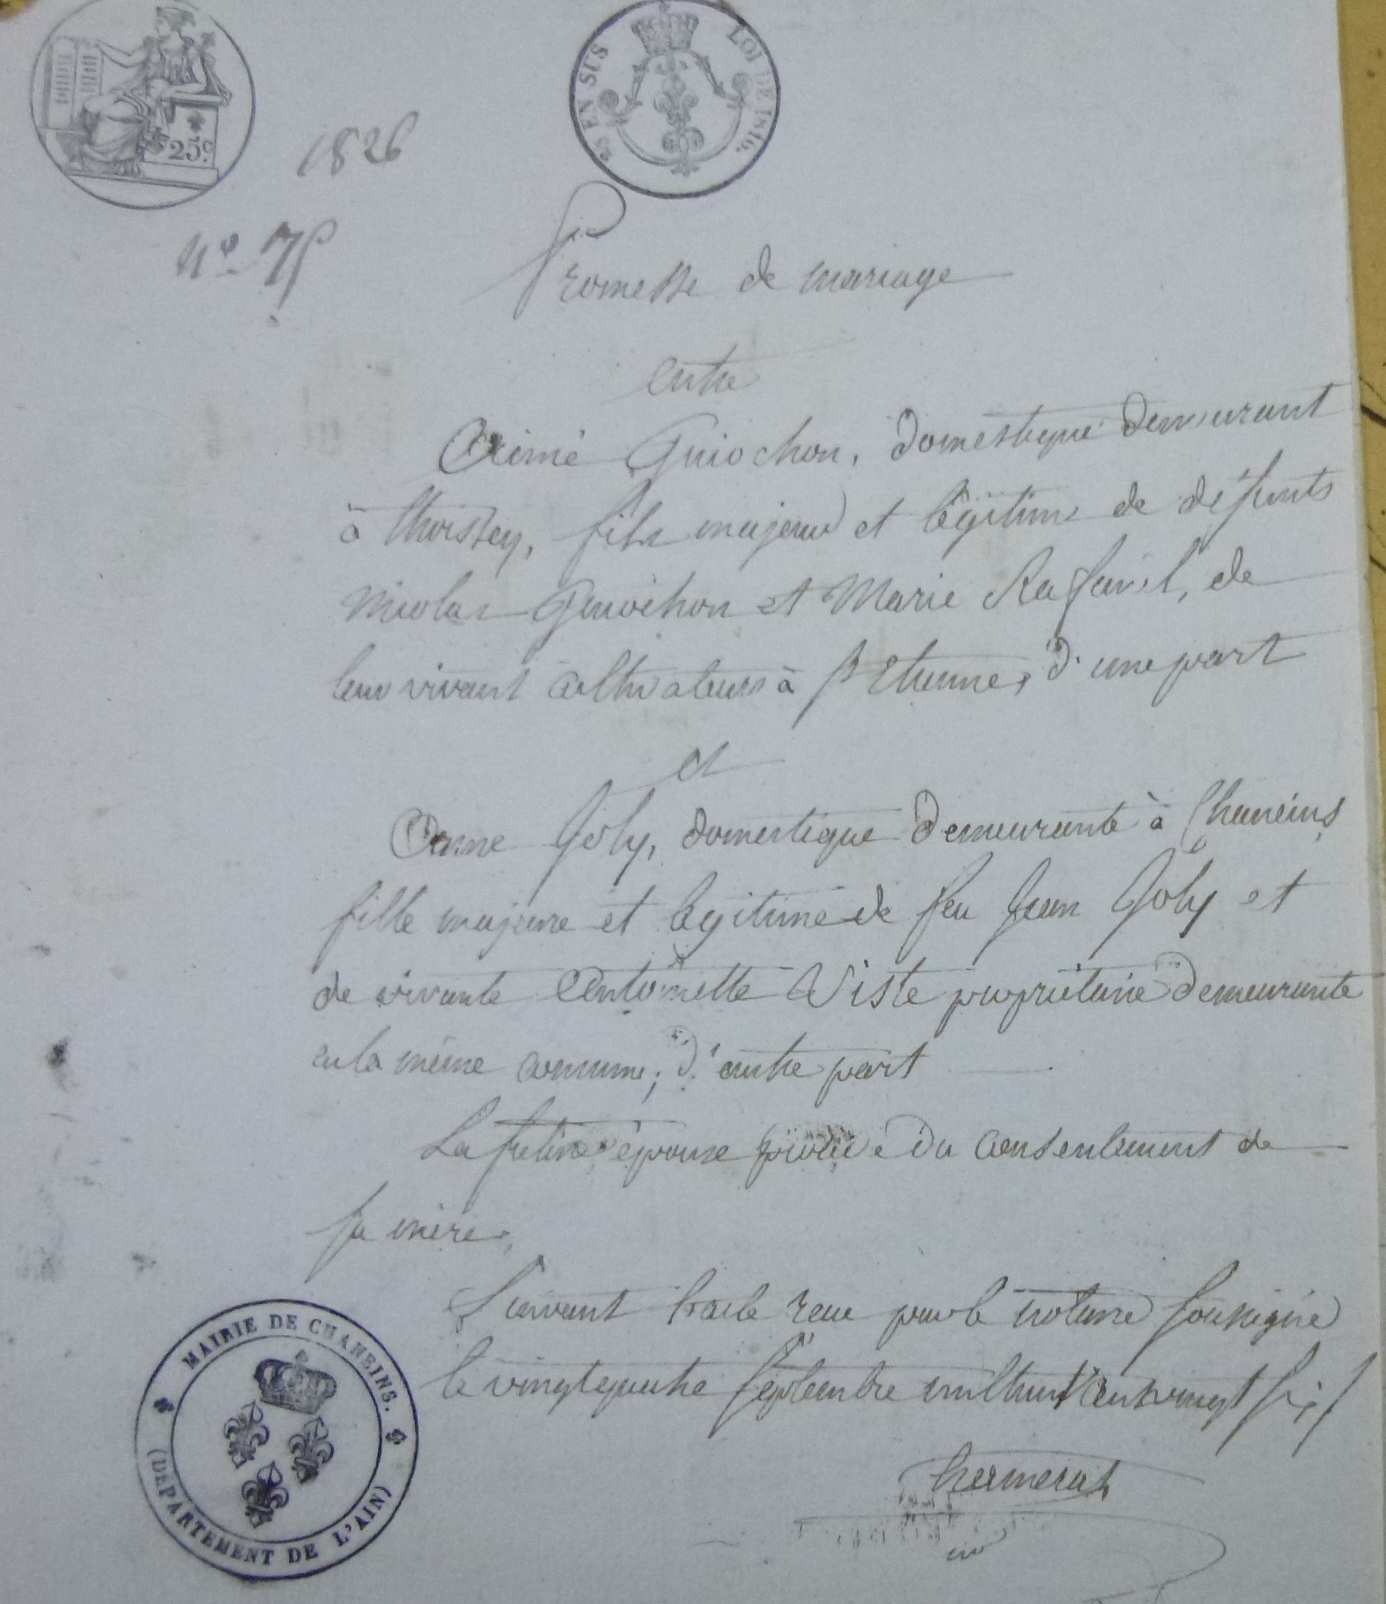 25 c
25 EN SUS
LOI DE 1816.
1826
N° 75
Promesse de mariage
entre
Aimé Guiochon, domestique demeurant
à thoissey, fils majeur et légitime de défunts
Nicolas Guiochon et Marie Rafavel, de
leur vivant cultivateurs à St Etienne, d'une part
et
Anne Joly, domestique demeurante à Chaneins,
fille majeure et légitime de feu Jean Joly et
de vivante Antoinette Viste propriétaire demeurante
en la même commune; d'autre part
La future épouse procède du consentement de
sa mère.
Suivant traité reçu par le notaire soussigné
le vingtquatre septembre milhuit cent vingt six
MAIRIE DE CHANEINS.
(DÉPARTEMENT DE L'AIN)